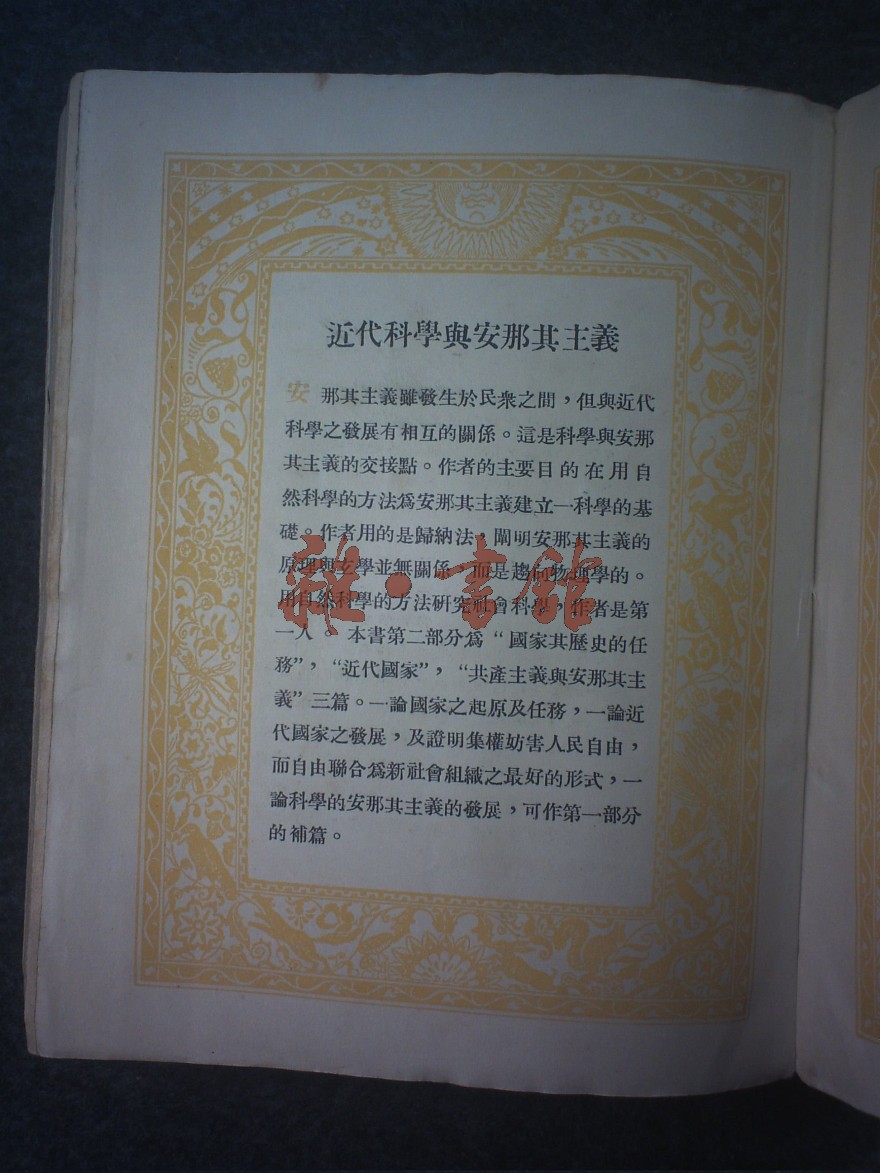 近代科學與安那其主義
安那其主義雖發生於民衆之間,但與近代
科學之發展有相互的關係。這是科學與安那
其主義的交接點。作者的主要目的在用自
然科學的方法爲安那其主義建立一科學的基
礎。作者用的是歸納法,闡明安那其主義的
原理與玄學並無關係,而是趨向物理學的。
用自然科學的方法研究社會科學,作者是第
一人。本書第二部分爲“國家其歷史的任
務”,“近代國家”,“共產主義與安那其主
義”三篇。一論國家之起原及任務,一論近
代國家之發展,及證明集權妨害人民自由,
而自由聯合爲新社會組織之最好的形式,一
論科學的安那其主義的發展,可作第一部分
的補篇。
雜·書館